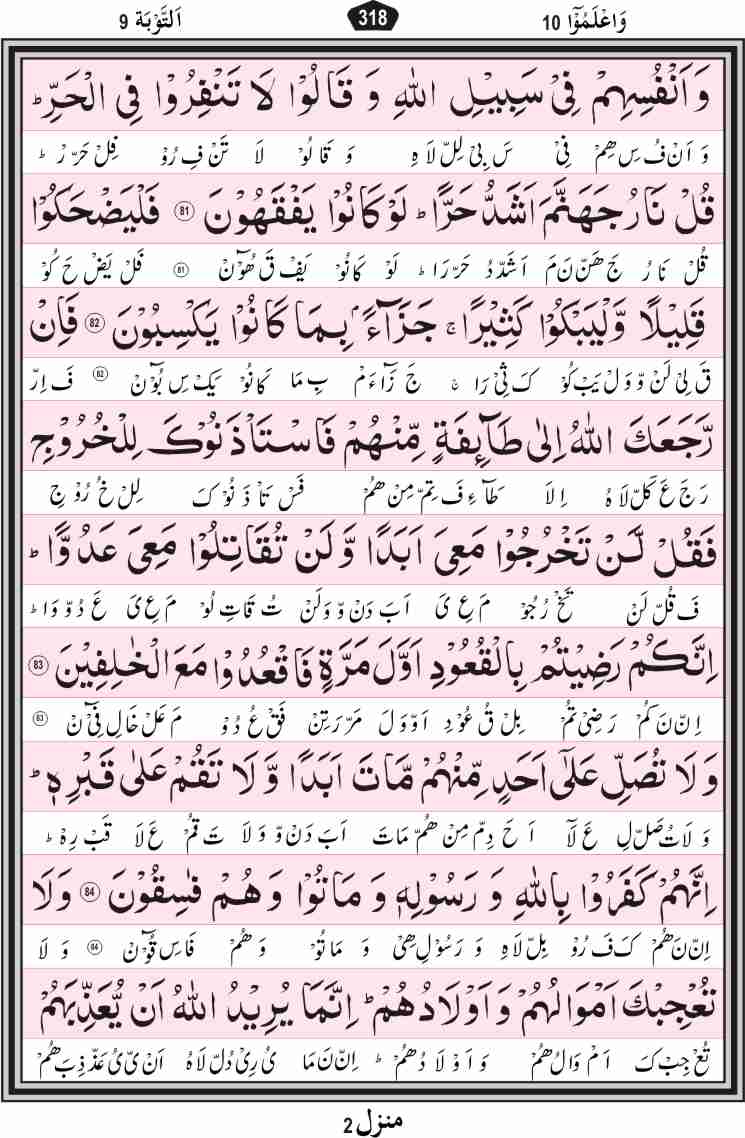 اَلتَّوْبَة 9
318
وَاعْلَمُوْۤا 10
وَاَنْفُسِهِمْ فِیْ سَبِیْلِ اللّٰهِ وَ قَالُوْا لَا تَنْفِرُوْا فِی الْحَرِّؕ
وَ اَنْ فُ سِ هِمْ فِیْ سَ بِیْ لِلّ لَاهِ وَ قَا لُوْ لَا تَنْ فِ رُوْ فِلْ حَرْ رْؕ
قُلْ نَارُ جَهَنَّمَ اَشَدُّ حَرًّاؕ لَوْ كَانُوْا یَفْقَهُوْنَ 81 فَلْیَضْحَكُوْا
قُلْ نَا رُ جَ هَنْ نَ مَ اَشَدْ دُ حَرْ رَاؕ لَوْ كَانُوْ یَفْ قَ هُوْٓنْ 81 فَلْ یَضْ حَ كُوْ
قَلِیْلًا وَّلْیَبْكُوْا كَثِیْرًاۚ جَزَآءًۢ بِمَا كَانُوْا یَكْسِبُوْنَ 82 فَاِنْ
قَ لِیْ لَنْ وَّ وَلْ یَبْ كُوْ كَ ثِیْ رَاۚ جَ زَآءَمْ بِ مَا كَانُوْ یَكْ سِ بُوْٓنْ 82 فَ اِرّ
رَّجَعَكَ اللّٰهُ اِلٰی طَآىِٕفَةٍ مِّنْهُمْ فَاسْتَاْذَنُوْكَ لِلْخُرُوْجِ
رَجَ عَ كَلّ لَاهُ اِلَا طَآءِ فَ تِمّ مِنْ هُمْ فَسْ تَاْ ذَ نُوْ كَ لِلْ خُ رُوْ جِ
فَقُلْ لَّنْ تَخْرُجُوْا مَعِیَ اَبَدًا وَّ لَنْ تُقَاتِلُوْا مَعِیَ عَدُوًّاؕ
فَ قُلّ لَنْ تَخْ رُجُوْ مَ عِ یَ اَبَ دَنْ وّ وَلَنْ تُ قَاتِ لُوْ مَ عِ یَ عَ دُوْ وَاؕ
اِنَّكُمْ رَضِیْتُمْ بِالْقُعُوْدِ اَوَّلَ مَرَّةٍ فَاقْعُدُوْا مَعَ الْخٰلِفِیْنَ 83
اِنْ نَ كُمْ رَضِیْ تُمْ بِلْ قُ عُوْدِ اَوْ وَلَ مَرْ رَتِنْ فَقْ عُ دُوْ مَ عَلْ خَالِ فِیْٓنْ 83
وَ لَا تُصَلِّ عَلٰۤی اَحَدٍ مِّنْهُمْ مَّاتَ اَبَدًا وَّ لَا تَقُمْ عَلٰی قَبْرِهٖؕ
وَ لَاتُ صَلّ لِ عَ لَاۤ اَ حَ دِمّ مِنْ هُمّ مَاتَ اَبَ دَنْ وّ وَلَا تَ قُمْ عَ لَا قَبْ رِهْؕ
اِنَّهُمْ كَفَرُوْا بِاللّٰهِ وَ رَسُوْلِهٖ وَ مَاتُوْا وَ هُمْ فٰسِقُوْنَ 84 وَ لَا
اِنْ نَ هُمْ كَ فَ رُوْ بِلّ لَاهِ وَ رَسُوْلِ هِیْ وَ مَا تُوْ وَ هُمْ فَاسِ قُوْٓنْ 84 وَ لَا
تُعْجِبْكَ اَمْوَالُهُمْ وَ اَوْلَادُهُمْؕ اِنَّمَا یُرِیْدُ اللّٰهُ اَنْ یُّعَذِّبَهُمْ
تُعْ جِبْ كَ اَمْ وَالُ هُمْ وَ اَوْ لَا دُ هُمْؕ اِنْ نَ مَا یُ رِیْ دُلّ لَاهُ اَنْ یّ یُ عَذّ ذِبَ هُمْ
منزل 2